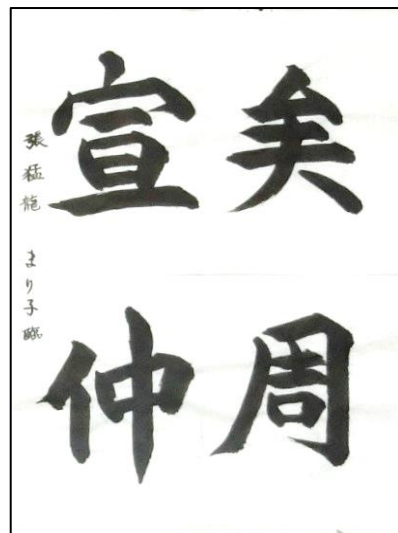 矣周
宣仲
張猛龍 まり子臨